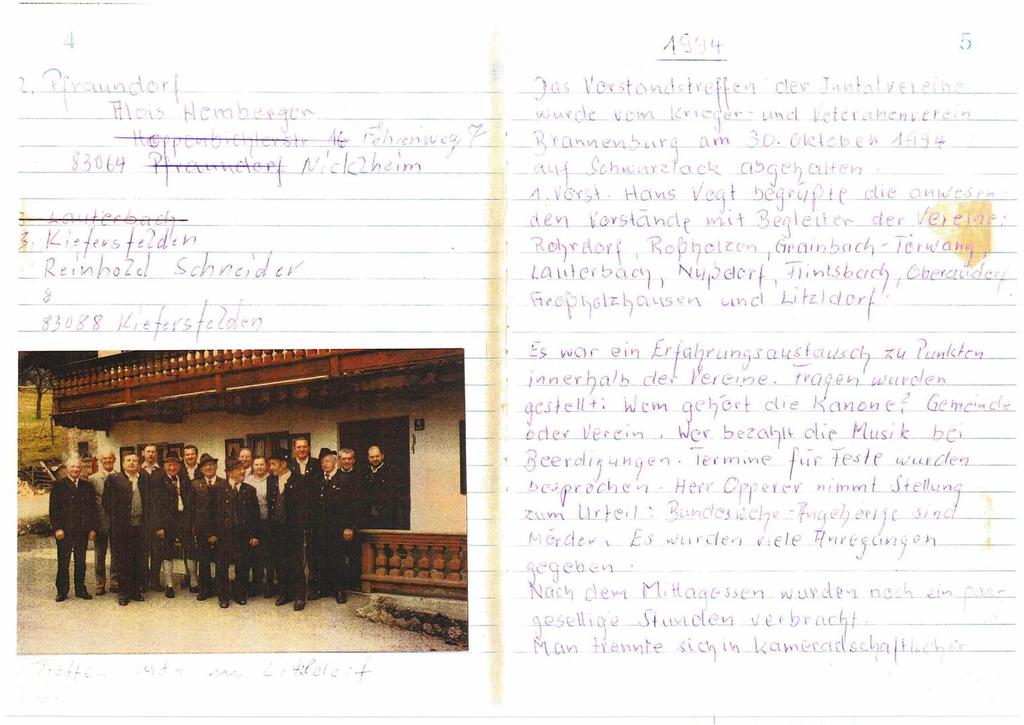 4
2. Pfraundorf
Alois Hemberger
Hoppenbichlerstr 16 Föhrenweg 7
83064 Pfraundorf Nicklheim
3. Lauterbach
3. Kiefersfelden
Reinhold Schneider
83088 Kiefersfelden
Treffen in Litzldorf
1994
5
Das Vorstandstreffen der Inntalvereine
wurde vom Krieger- und Veteranenverein
Brannenburg am 30. Oktober 1994
auf Schwarzlack abgehalten.
1. Vorst. Hans Vogt begrüßte die anwesen-
den Vorstände mit Begleiter der Vereine:
Rohrdorf, Roßholzen, Grainbach-Törwang,
Lauterbach, Nußdorf, Flintsbach, Oberaudorf
Großholzhausen und Litzldorf.
Es war ein Erfahrungsaustausch zu Punkten
innerhalb der Vereine. Fragen wurden
gestellt: Wem gehört die Kanone? Gemeinde
oder Verein. Wer bezahlt die Musik bei
Beerdigungen. Termine für Feste wurden
besprochen. Herr Opperer nimmt Stellung
zum Urteil: Bundeswehr-Angehörige sind
Mörder. Es wurden viele Anregungen
gegeben.
Nach dem Mittagessen wurden noch ein paar
gesellige Stunden verbracht.
Man trennte sich in kameradschaftlicher